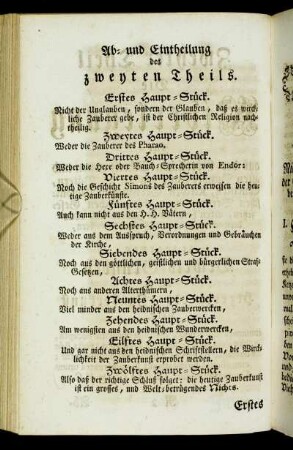 Ab- und Eintheilung
des
zweyten Theils.
Erstes Haupt-Stück.
Nicht der Unglauben, sondern der Glauben, daß es wirk-
liche Zauberer gebe, ist der Christlichen Religion nach-
theilig.
Zweytes Haupt-Stück.
Weder die Zauberer des Pharao,
Drittes Haupt-Stück.
Weder die Hexe oder Bauch-Sprecherin von Endor:
Viertes Haupt-Stück.
Noch die Geschicht Simons des Zauberers erweisen die heu-
tige Zauberkünste.
Fünftes Haupt-Stück.
Auch kann nicht aus den H. H. Vätern,
Sechstes Haupt-Stück.
Weder aus dem Ausspruch, Verordnungen und Gebräuchen
der Kirche,
Siebendes Haupt-Stück.
Noch aus den göttlichen, geistlichen und bürgerlichen Straf-
Gesetzen,
Achtes Haupt-Stück.
Noch aus anderen Alterthümern,
Neuntes Haupt-Stück.
Viel minder aus den heidnischen Zauberwercken,
Zehendes Haupt-Stück.
Am wenigsten aus den heidnischen Wunderwercken,
Eilftes Haupt-Stück.
Und gar nicht aus den heidnischen Schriftstellern, die Würk-
lichkeit der Zauberkunst erprobet werden.
Zwölftes Haupt-Stück.
Also daß der richtige Schluß folget: die heutige Zauberkunst
ist ein grosses, und Welt-betrügendes Nichts.
Erstes